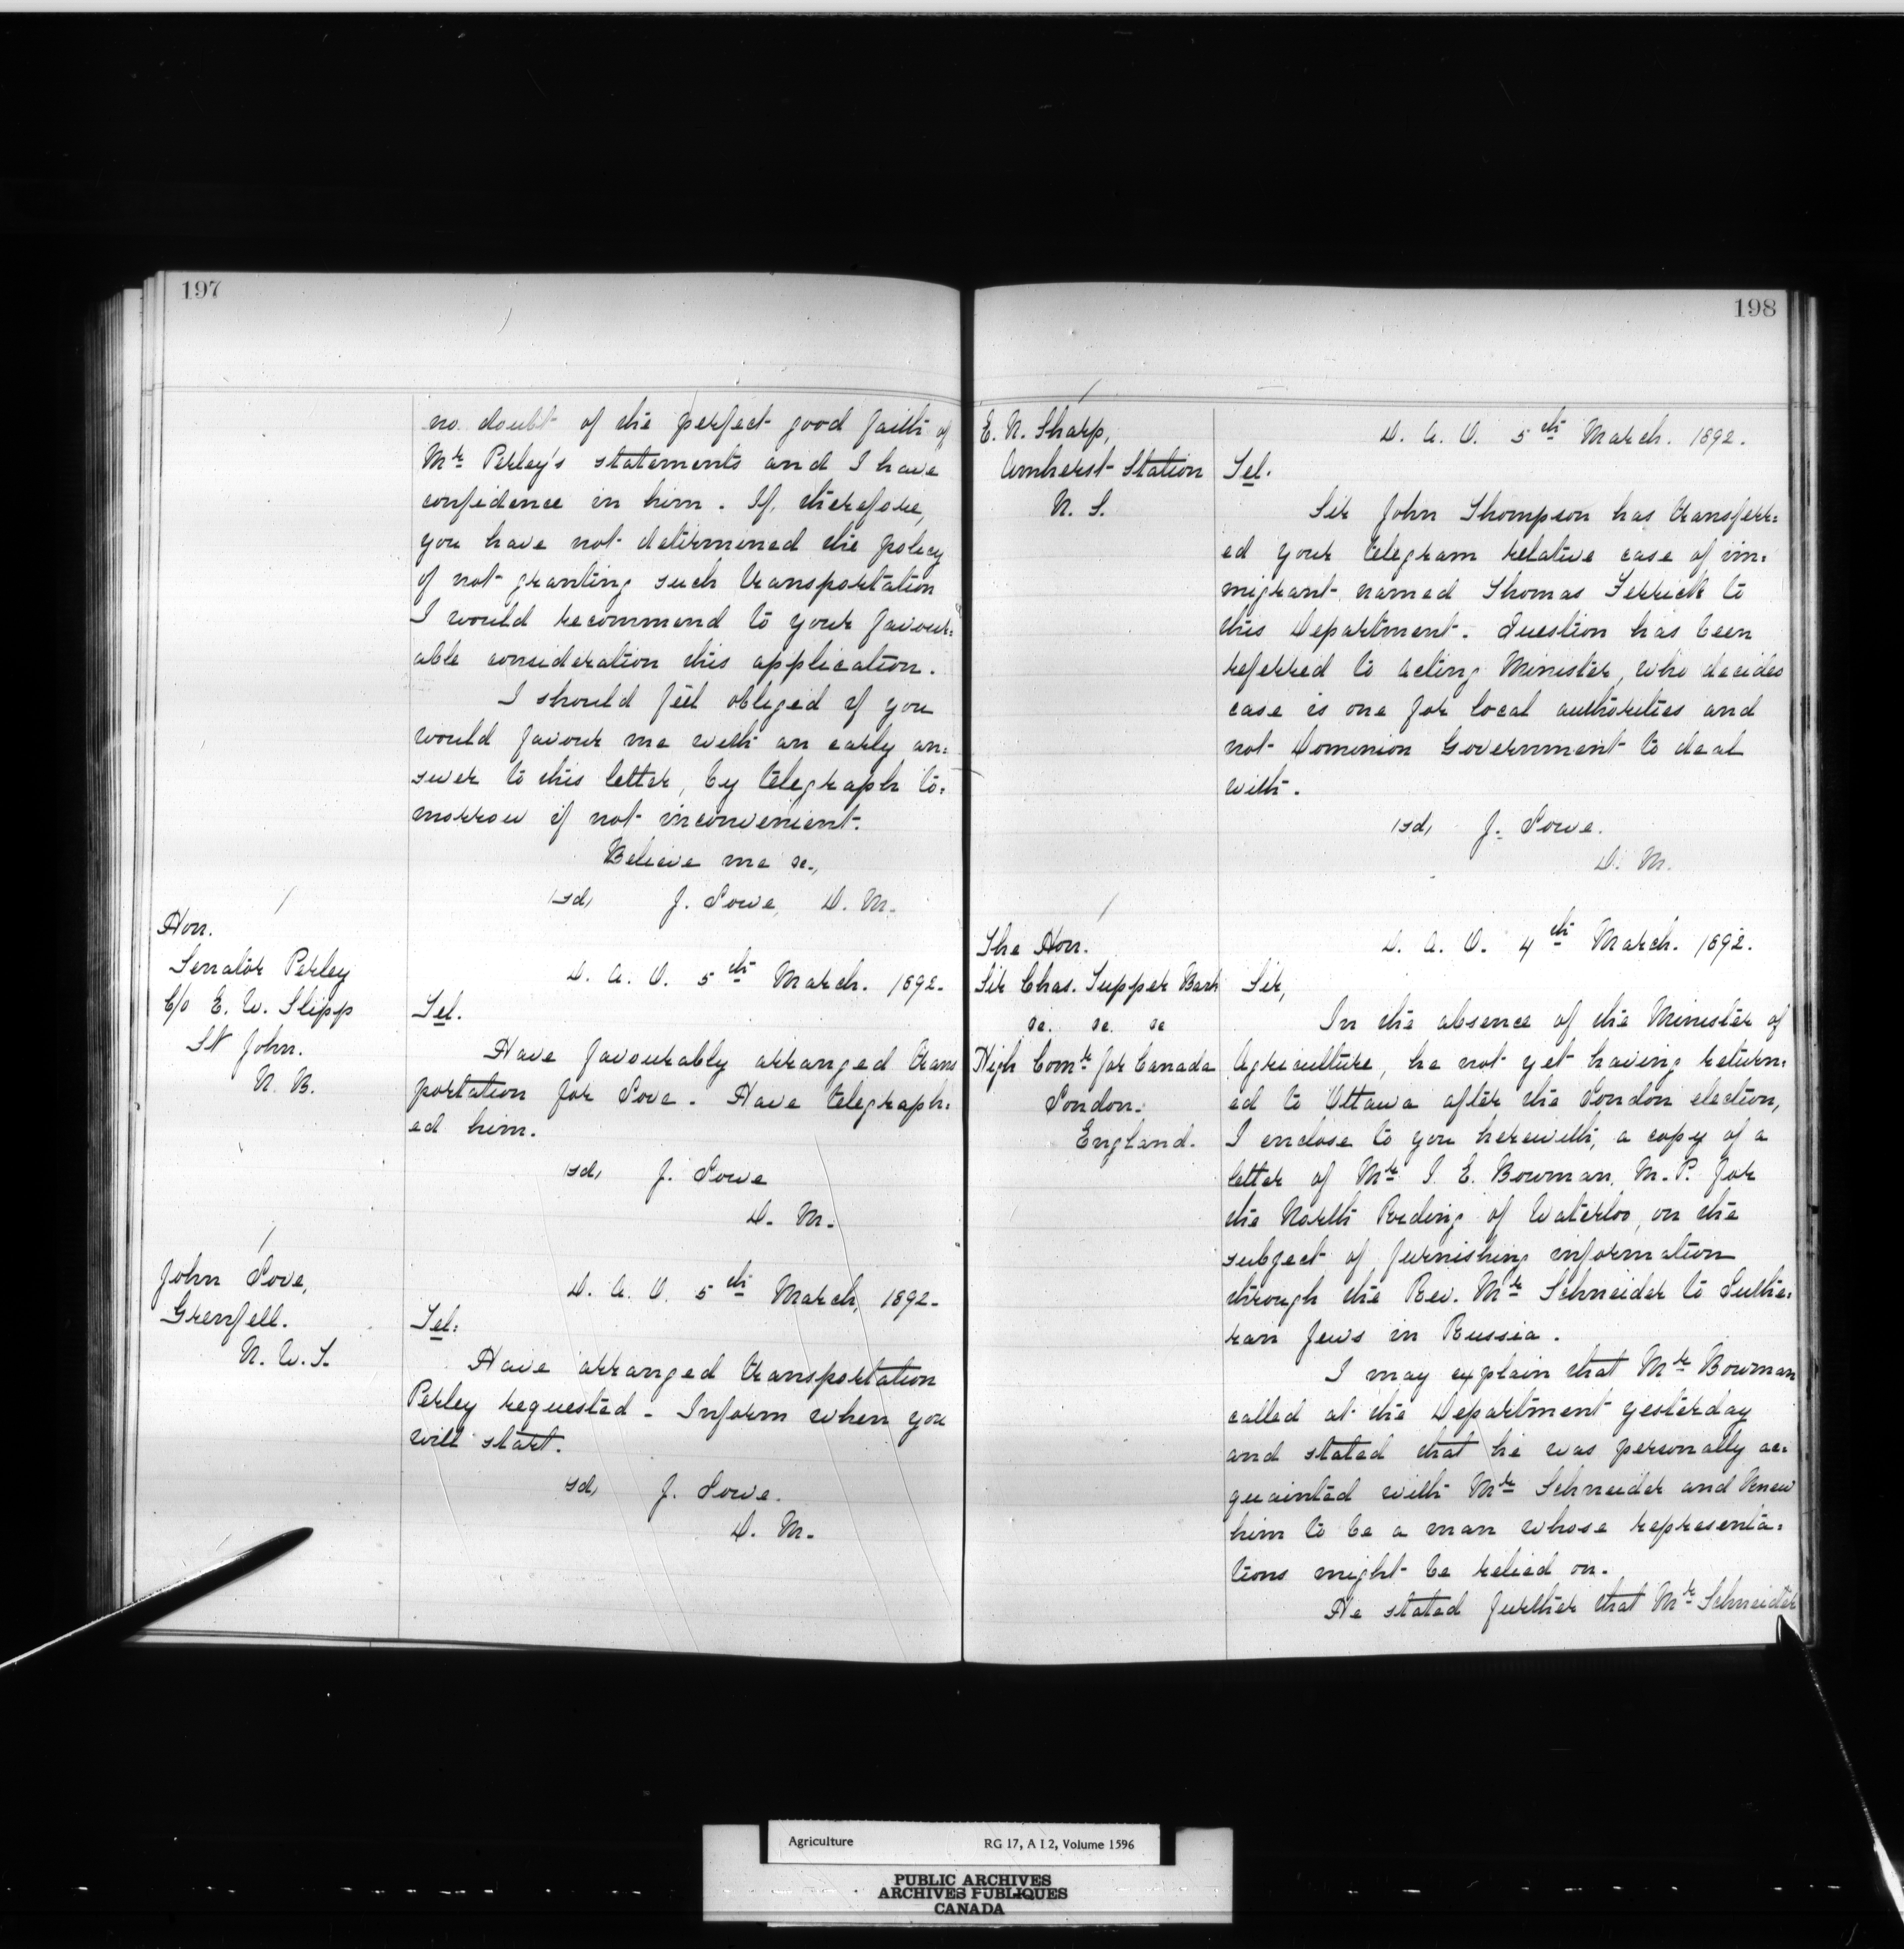 197
no doubt of the perfect good faith of
Mr Perley's statements and I have
confidence in him. If, therefore,
you have not determined the policy
of not granting such transportation
I would recommend to your favour=
able consideration this application.
I should feel obliged if you
would favour me with an early an=
swer to this letter, by telegraph to=
morrow if not inconvenient.
Believe me &c.,
sd, J. Lowe, D. M.
Hon.
Senator Perley
C/o E. W. Slipp
St John.
N. B.
D. A. O. 5th March. 1892.
Tel.
Have favourably arranged trans
portation for Love. Have telegraph=
ed him.
sd, J. Lowe
D. M.
John Love,
Grenfell.
N. W. T.
D. A. O. 5th March, 1892.
Tel:
Have arranged transportation
Perley requested - Inform when you
will start.
sd, J. Lowe.
D. M.
198
E. N. Sharp,
Amherst Station
N. S.
D. A. O. 5th March. 1892.
Tel.
Sir John Thompson has transferr=
ed your telegram relative case of im=
migrant named Thomas Ferrick to
this Department. Question has been
referred to acting Minister, who decides
case is one for local authorities and
not Dominion Government to deal
with.
sd, J. Lowe.
D. M.
The Hon.
Sir Chas. Tupper Bart
&c. &c. &c
High Comr for Canada
London.
England.
D. A. O. 4th March. 1892.
Sir,
In the absence of the Minister of
Agriculture, he not yet having return=
ed to Ottawa after the London election,
I enclose to you herewith, a copy of a
letter of Mr I. E. Bowman, M. P. for
the North Riding of Waterloo, on the
subject of furnishing information
through the Rev. Mr Schneider to Luthe=
ran Jews in Russia.
I may explain that Mr Bowman
called at the Department yesterday
and stated that he was personally ac=
quainted with Mr Schneider and knew
him to be a man whose representa=
tions might be relied on.
He stated further that Mr Schneider
Agriculture RG 17, A I 2, Volume 1596
PUBLIC ARCHIVES
ARCHIVES PUBLIQUES
CANADA